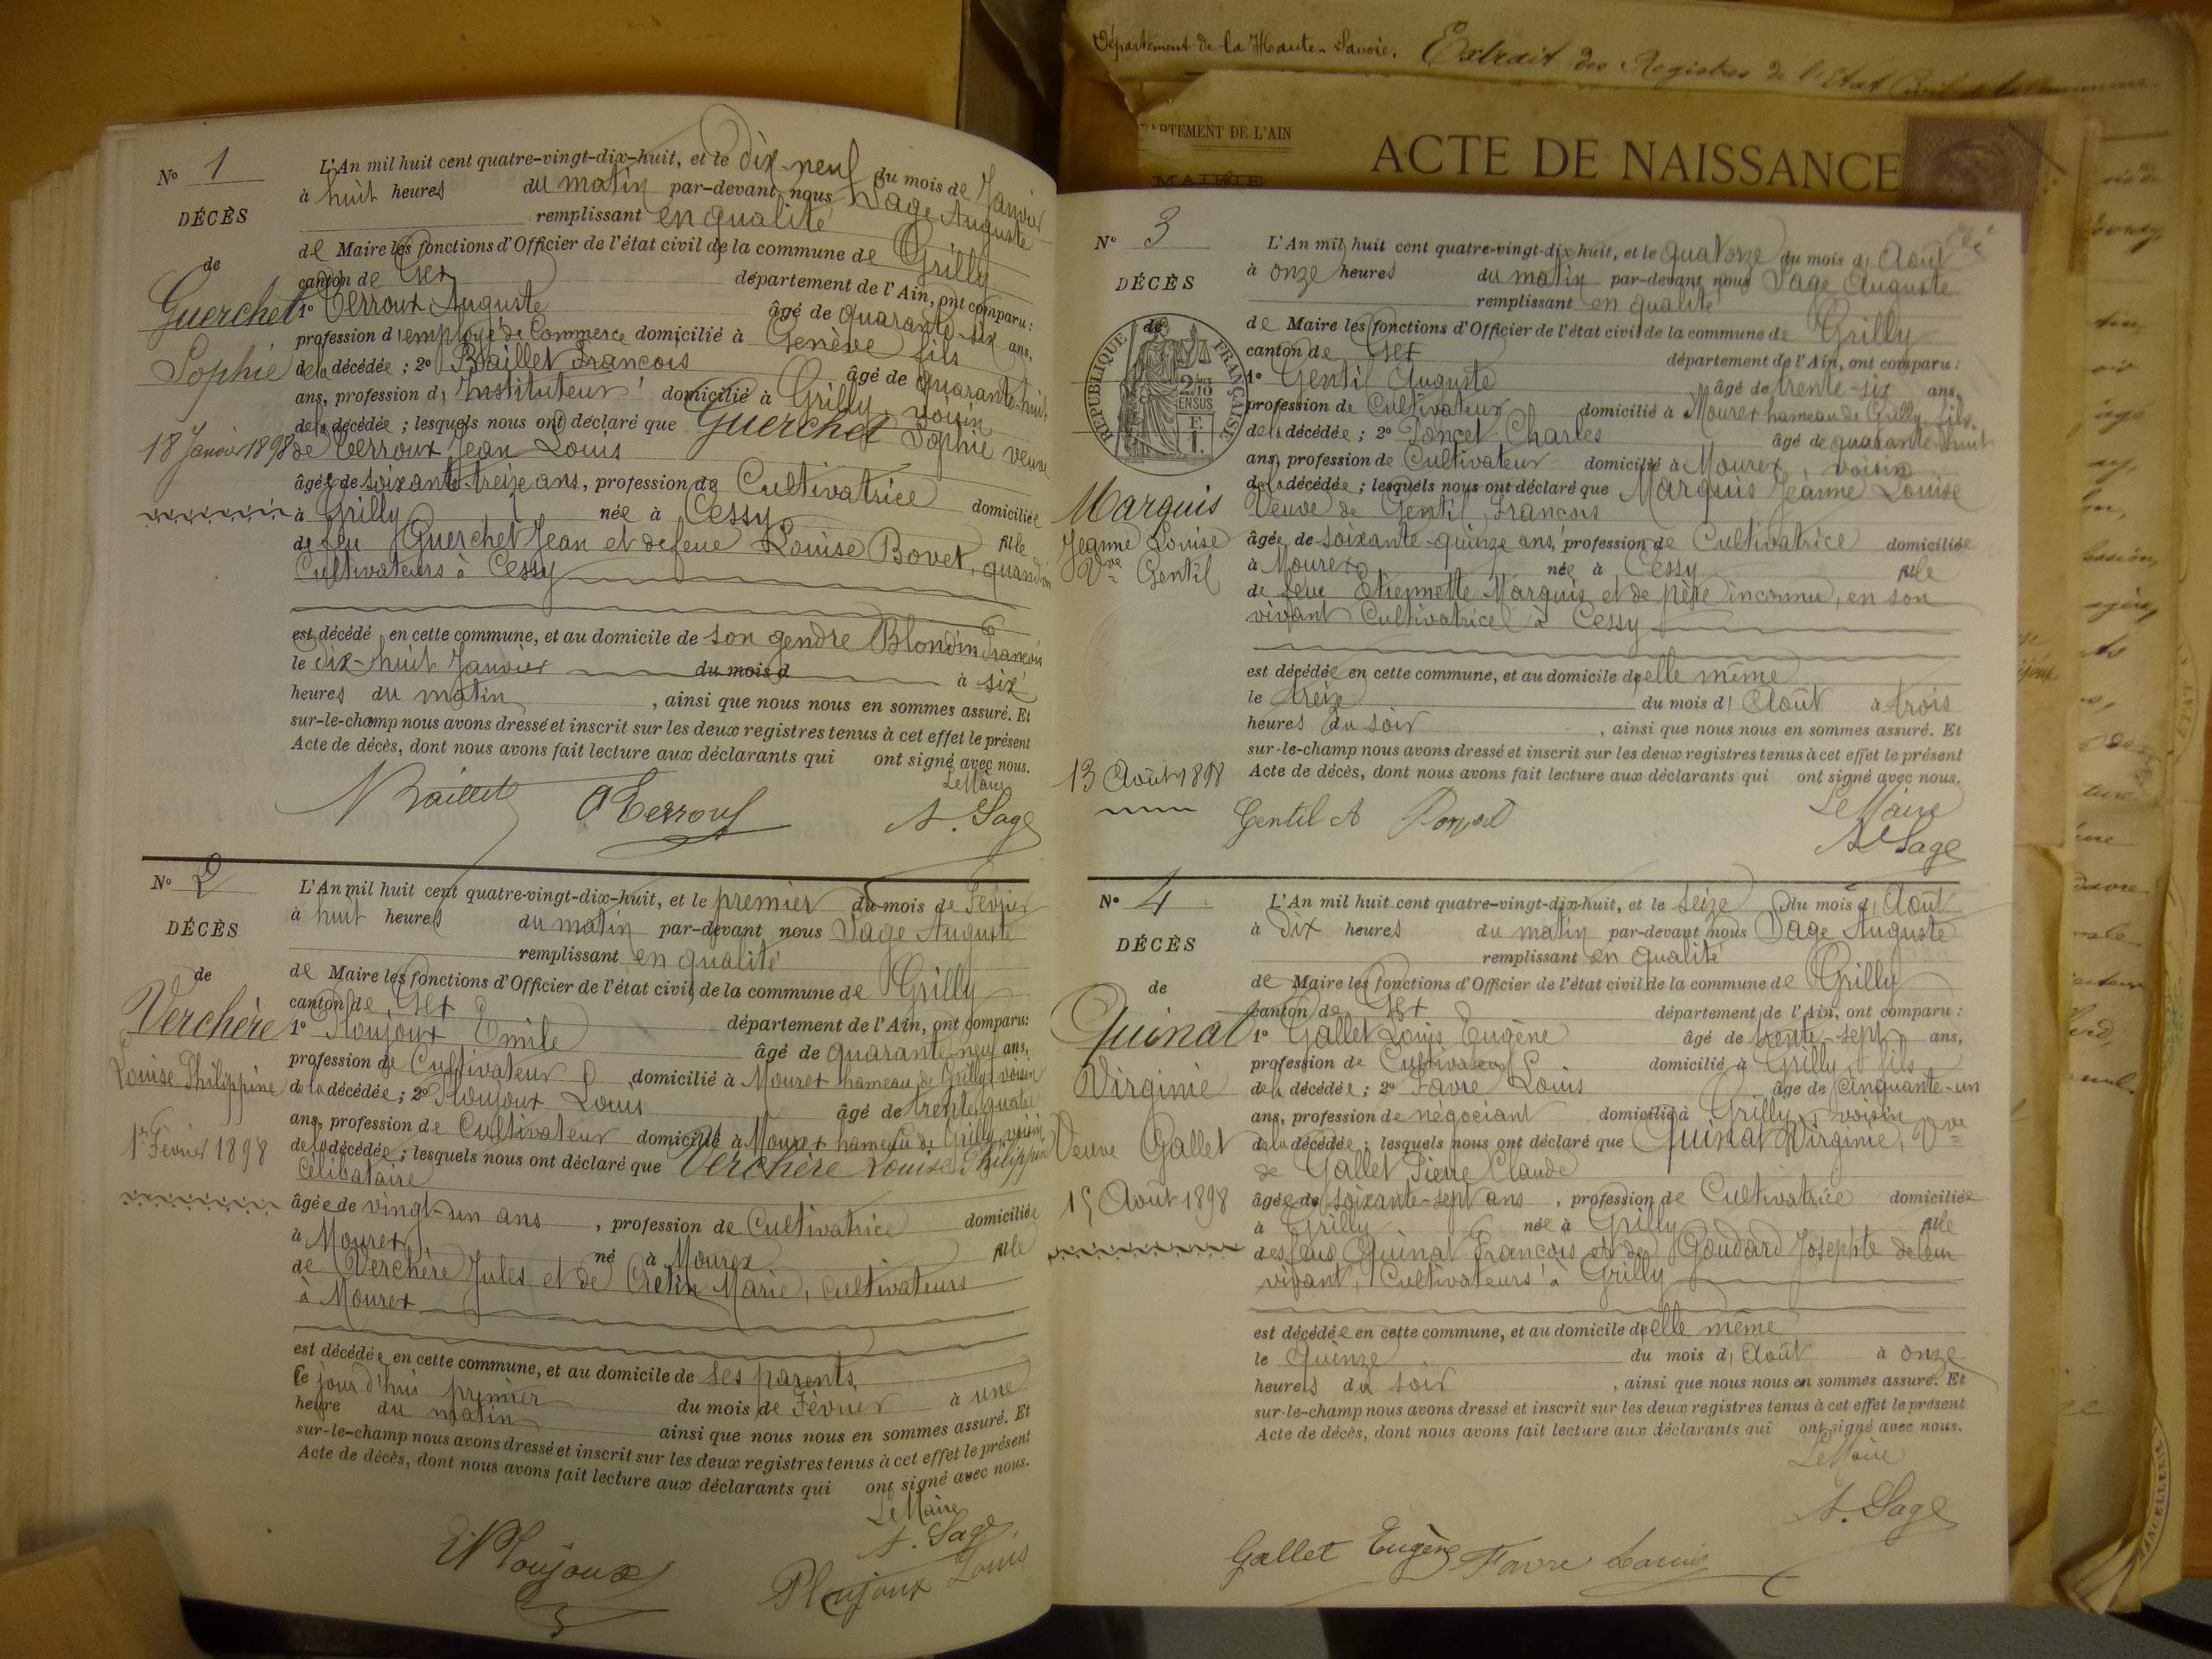 N° 1
DÉCÈS
de
Guerchet
Sophie
18 Janvier 1898
L'An mil huit cent quatre-vingt-dix-huit, et le dix-neuf du mois de Janvier
à huit heures du matin par-devant nous Sage Auguste
remplissant en qualité
de Maire les fonctions d'Officier de l'état civil de la commune de Grilly
canton de Gex département de l'Ain, ont comparu:
1° Terroux Auguste âgé de quarante-six ans,
profession d'employé de Commerce domicilié à Genève fils
de la décédée; 2° Baillet François âgé de quarante-huit
ans, profession d'Instituteur domicilié à Grilly, voisin
de la décédée; lesquels nous ont déclaré que Guerchet Sophie veuve
de Terroux Jean Louis
âgée de soixante-treize ans, profession de Cultivatrice domiciliée
à Grilly née à Cessy fille
de feu Guerchet Jean et de feue Louise Bovet, quand vi
Cultivateurs à Cessy
est décédé en cette commune, et au domicile de son gendre Blondin François
le dix-huit Janvier du mois d à six
heures du matin, ainsi que nous nous en sommes assuré. Et
sur-le-champ nous avons dressé et inscrit sur les deux registres tenus à cet effet le présent
Acte de décès, dont nous avons fait lecture aux déclarants qui ont signé avec nous.
Le Maire
Baillet A Terroux A. Sage
N° 2
DÉCÈS
de
Verchère
Louise Philippine
1er Février 1898
L'An mil huit cent quatre-vingt-dix-huit, et le premier du mois de Février
à huit heures du matin par-devant nous Sage Auguste
remplissant en qualité
de Maire les fonctions d'Officier de l'état civil de la commune de Grilly
canton de Gex département de l'Ain, ont comparu:
1° Ploujoux Emile âgé de quarante-neuf ans,
profession de Cultivateur domicilié à Mourex hameau de Grilly, voisin
de la décédée; 2° Ploujoux Louis âgé de trente-quatre
ans, profession de Cultivateur domicilié à Mourex hameau de Grilly, voisin
de la décédée; lesquels nous ont déclaré que Verchère Louise Philippine
Célibataire
âgée de vingt-un ans, profession de Cultivatrice domiciliée
à Mourex né à Mourex fille
de Verchère Jules et de Cretin Marie, cultivateurs
à Mourex
est décédée en cette commune, et au domicile de ses parents,
le jour d'hui premier du mois de Février à une
heure du matin ainsi que nous nous en sommes assuré. Et
sur-le-champ nous avons dressé et inscrit sur les deux registres tenus à cet effet le présent
Acte de décès, dont nous avons fait lecture aux déclarants qui ont signé avec nous.
Le Maire
A. Sage
E Ploujoux Ploujoux Louis
Département de la Haute-Savoie. Extrait des Registres de l'Etat Civil de la Commune
DÉPARTEMENT DE L'AIN
MAIRIE
ACTE DE NAISSANCE
N° 3
DÉCÈS
de
RÉPUBLIQUE FRANÇAISE
2/10 EN SUS
Marquis
Jeanne Louise
Vve Gentil
13 Août 1898
L'An mil huit cent quatre-vingt-dix-huit, et le quatorze du mois d'Août
à onze heures du matin par-devant nous Sage Auguste
remplissant en qualité
de Maire les fonctions d'Officier de l'état civil de la commune de Grilly
canton de Gex département de l'Ain, ont comparu:
1° Gentil Auguste âgé de trente-six ans,
profession de Cultivateur domicilié à Mourex hameau de Grilly, fils
de la décédée; 2° Poncet Charles âgé de quarante-huit
ans, profession de Cultivateur domicilié à Mourex, voisin
de la décédée; lesquels nous ont déclaré que Marquis Jeanne Louise
Veuve de Gentil François
âgée de soixante-quinze ans, profession de Cultivatrice domiciliée
à Mourex née à Cessy fille
de feue Etiennette Marquis et de père inconnu, en son
vivant Cultivatrice à Cessy
est décédée en cette commune, et au domicile d'elle même
le treize du mois d'Août à trois
heures du soir, ainsi que nous nous en sommes assuré. Et
sur-le-champ nous avons dressé et inscrit sur les deux registres tenus à cet effet le présent
Acte de décès, dont nous avons fait lecture aux déclarants qui ont signé avec nous.
Le Maire
Gentil A Poncet A Sage
N° 4
DÉCÈS
de
Quinat
Virginie
Veuve Gallet
15 Août 1898
L'An mil huit cent quatre-vingt-dix-huit, et le seize du mois d'Août
à dix heures du matin par-devant nous Sage Auguste
remplissant en qualité
de Maire les fonctions d'Officier de l'état civil de la commune de Grilly
canton de Gex département de l'Ain, ont comparu:
1° Gallet Louis Eugène âgé de trente-sept ans,
profession de Cultivateur domicilié à Grilly, fils
de la décédée; 2° Favre Louis âgé de cinquante-un
ans, profession de négociant domicilié à Grilly, voisin
de la décédée; lesquels nous ont déclaré que Quinat Virginie, Vve
de Gallet Pierre Claude
âgée de soixante-sept ans, profession de Cultivatrice domiciliée
à Grilly née à Grilly fille
des feus Quinat François et de Goudard Josephte de leur
vivant, Cultivateurs à Grilly
est décédée en cette commune, et au domicile d'elle même
le quinze du mois d'Août à onze
heures du soir, ainsi que nous nous en sommes assuré. Et
sur-le-champ nous avons dressé et inscrit sur les deux registres tenus à cet effet le présent
Acte de décès, dont nous avons fait lecture aux déclarants qui ont signé avec nous.
Le Maire
A. Sage
Gallet Eugène Favre Louis